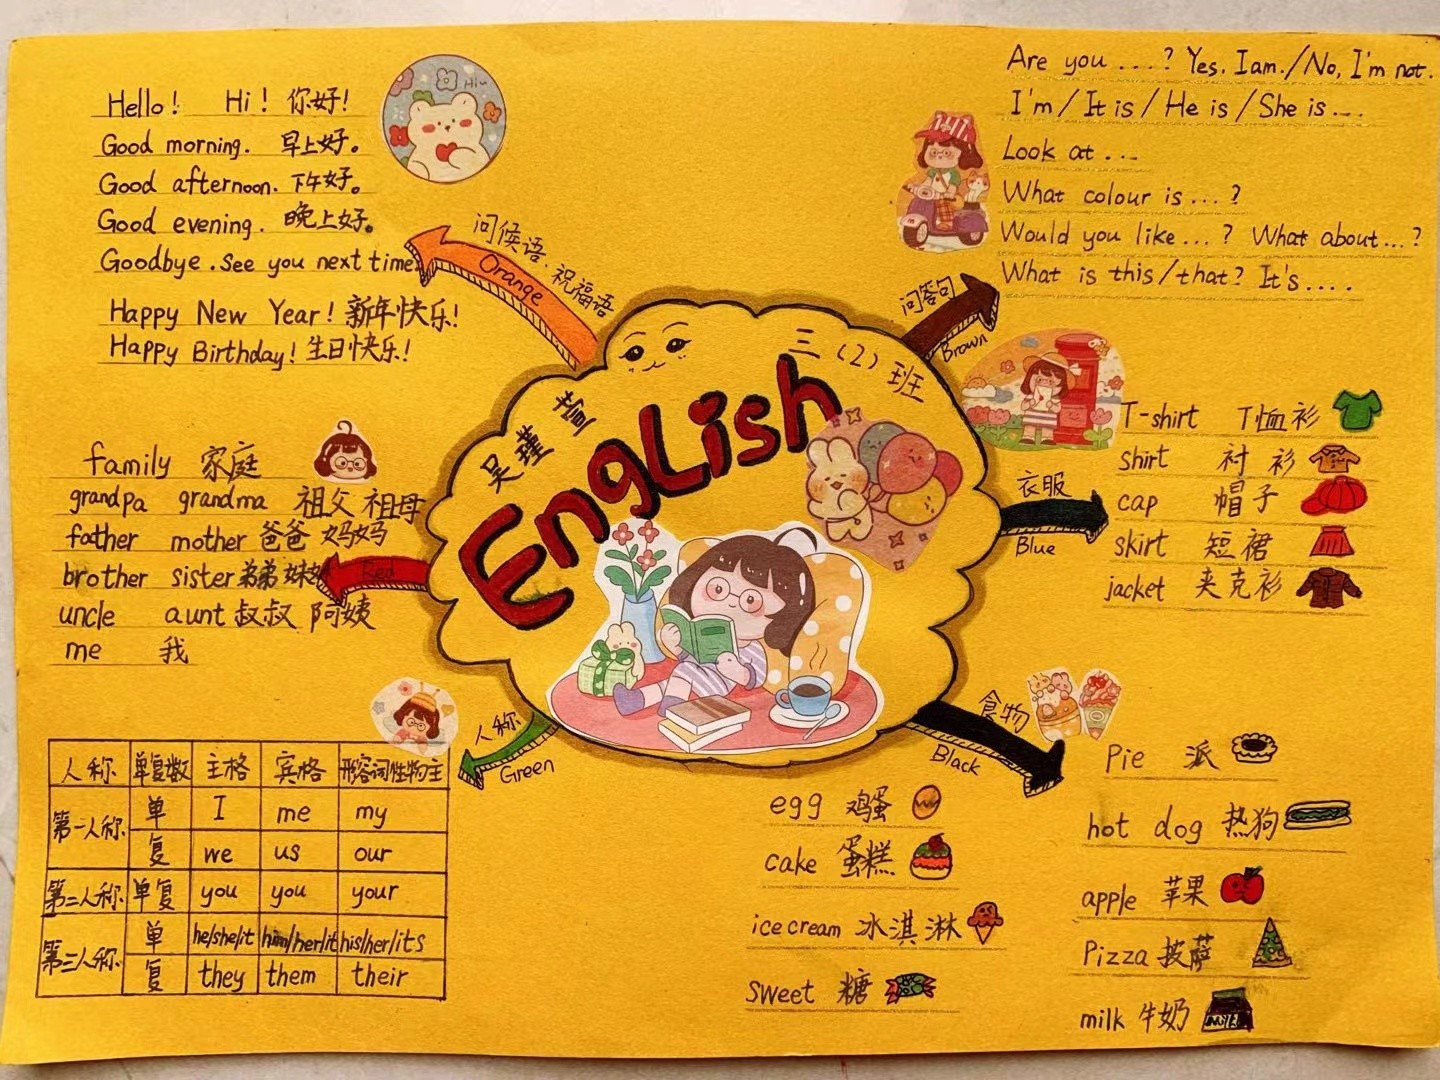 Hello! Hi! 你好!
Good morning. 早上好。
Good afternoon. 下午好。
Good evening. 晚上好。
Goodbye. See you next time.
Happy New Year! 新年快乐!
Happy Birthday! 生日快乐!
Hi~
问候语、祝福语
Orange
Are you ....? Yes, I am./No, I'm not.
I'm/It is/He is/She is....
Look at...
What colour is...?
Would you like...? What about...?
What is this/that? It's....
问答句
Brown
三(2)班
吴瑾萱
EngLish
family 家庭
grandpa grandma 祖父 祖母
father mother 爸爸 妈妈
brother sister 弟弟 妹妹
uncle aunt 叔叔 阿姨
me 我
Red
T-shirt T恤衫
shirt 衬衫
cap 帽子
skirt 短裙
jacket 夹克衫
衣服
Blue
人称
Green
人称 单复数 主格 宾格 形容词性物主
第一人称 单 I me my
复 we us our
第二人称 单复 you you your
第三人称 单 he/she/it him/her/it his/her/its
复 they them their
食物
Black
egg 鸡蛋
cake 蛋糕
ice cream 冰淇淋
sweet 糖
Pie 派
hot dog 热狗
apple 苹果
Pizza 披萨
milk 牛奶
Milk